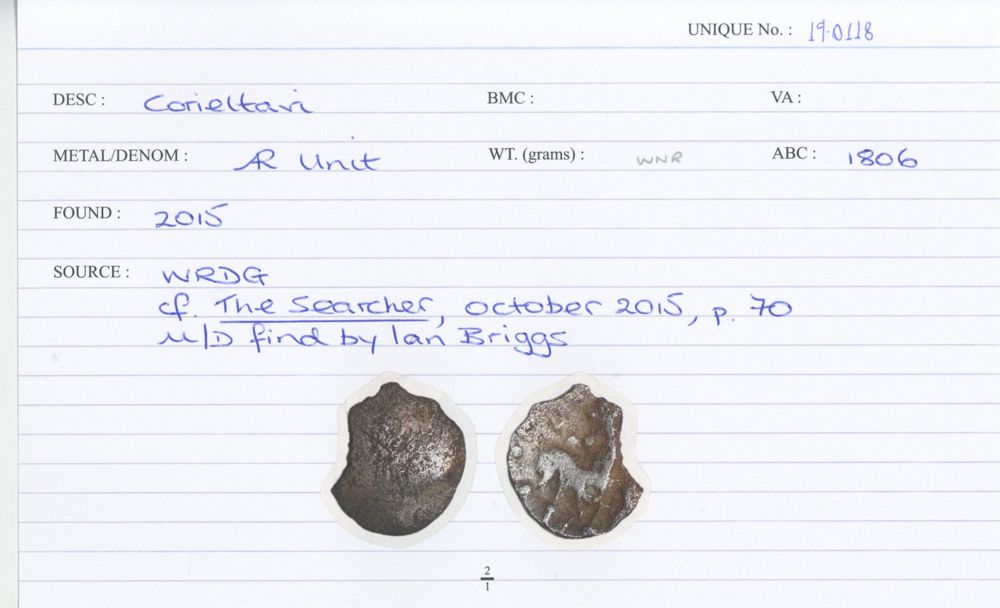 UNIQUE No. : 19.0118
DESC : Corieltavi BMC : VA :
METAL/DENOM : AR Unit WT. (grams) : WNR ABC : 1806
FOUND : 2015
SOURCE : WRDG
cf. The Searcher, October 2015, p. 70
M/D find by Ian Briggs
2
1